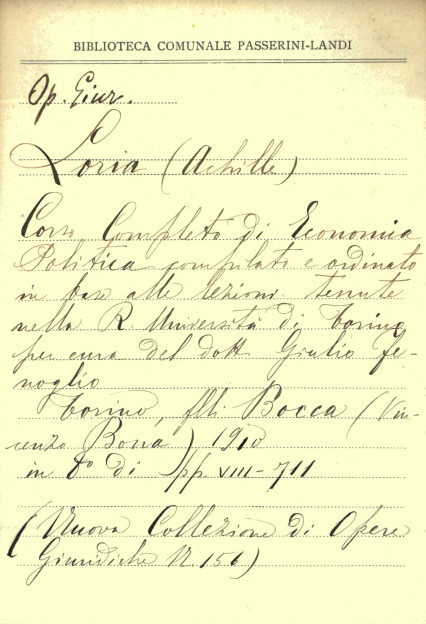 BIBLIOTECA COMUNALE PASSERINI-LANDI
Op. Giur.
Loria (Achille)
Corso Completo di Economia
Politica compilato e ordinato
in base alle lezioni tenute
nella R. Università di Torino
per cura del dott. Giulio Fe-
noglio
Torino, flli Bocca (Vin-
cenzo Bona) 1910
in 8° di pp. VIII-711
(Nuova Collezione di Opere
Giuridiche N. 156)